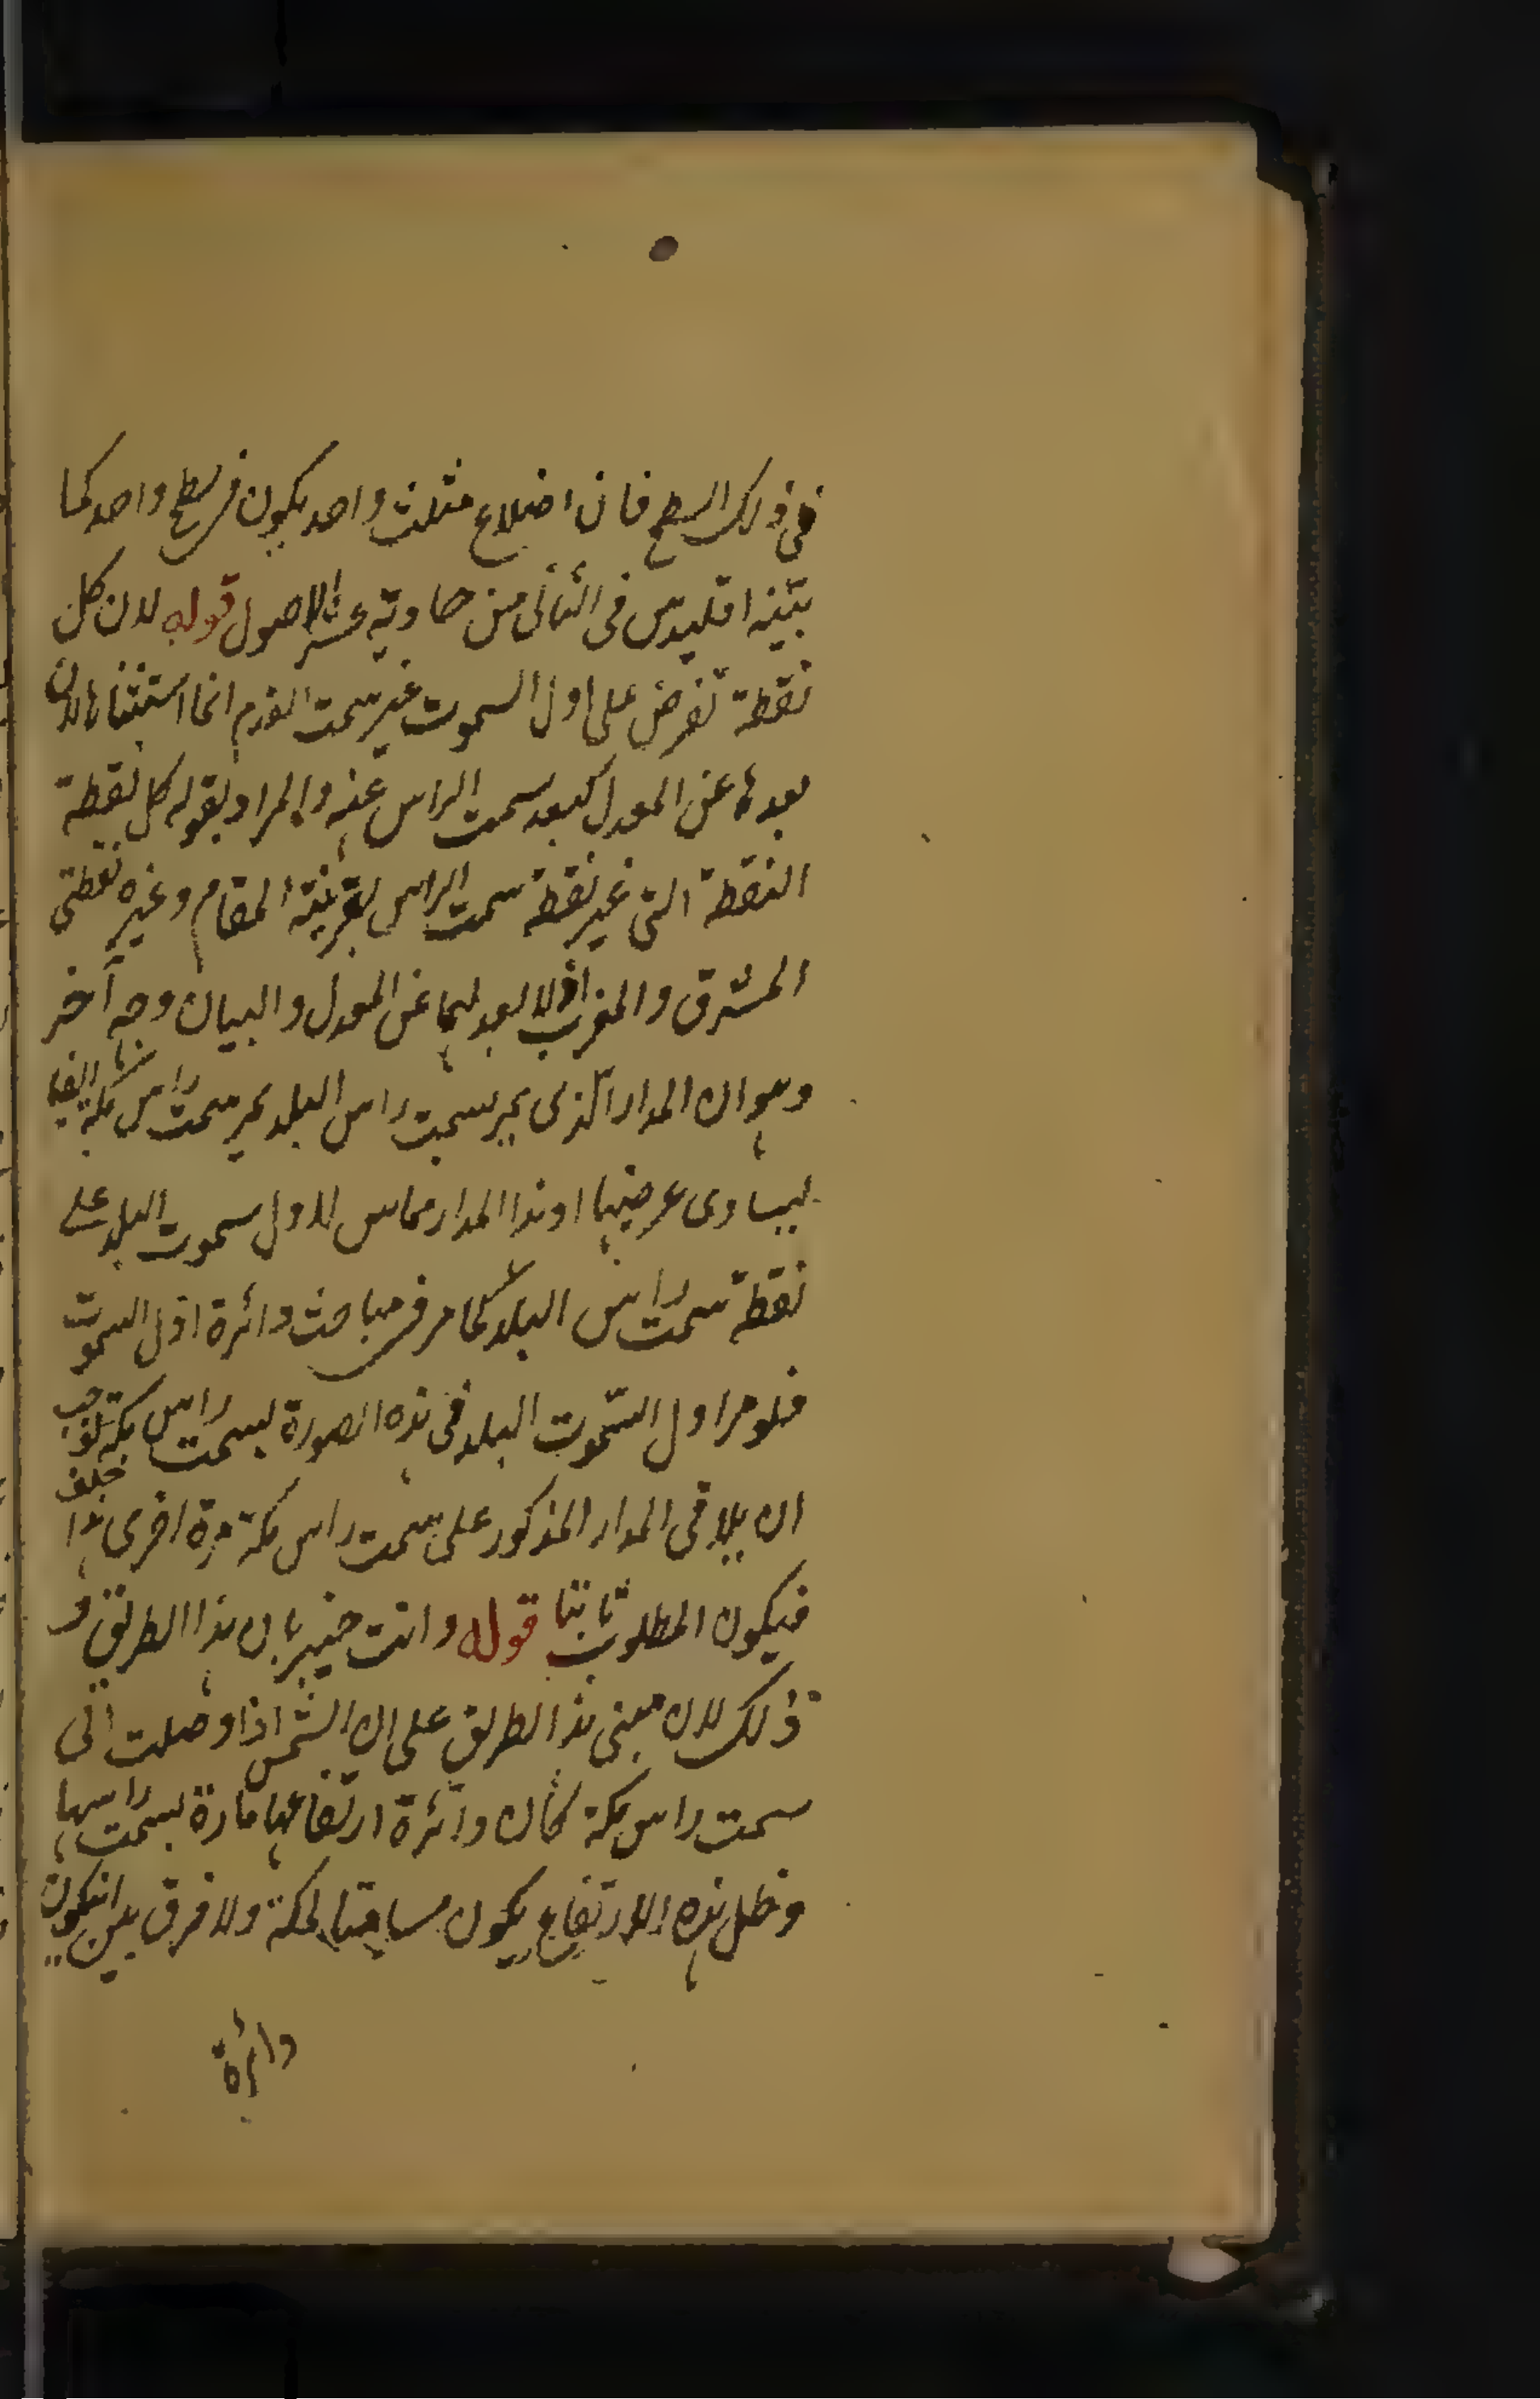 في ذلك السطح فان اضلاع مثلث واحد يكون في سطح واحد كما
بينه اقليدس في الثاني من حادية عشر الاصول قوله لان كل
نقطة تفرض على اول السموت غير سمت القدم انما استثناها لان
بعدها عن المعدل كبعد سمت الراس عنه والمراد بقوله كل نقطة
النقطة التي غير نقطة سمت الراس بقرينة المقام وغير نقطتي
المشرق والمغرب اذ لا بعد لهما عن المعدل والبيان وجه آخر
وهو ان المدار الذي يمر بسمت راس البلد يمر بسمت راس مكة ايضا
ليساوى عرضيهما وهذا المدار مماس لاول سموت البلد على
نقطة سمت راس البلد كما مر في مباحث دائرة اول السموت
فلو مر اول السموت البلد في هذه الصورة بسمت راس مكة لوجب
ان يلاقى المدار المذكور على سمت راس مكة مرة اخرى هذا خلف
فيكون المطلوب ثابتا قوله وانت خبير بان هذا الطريق و
ذلك لان مبنى هذا الطريق على ان الشمس اذا وصلت الى
سمت راس مكة كان دائرة ارتفاعها مارة بسمت راسها
وظل هذه الارتفاع يكون مسامتا لمكة ولا فرق بين ان يكون
دائرة